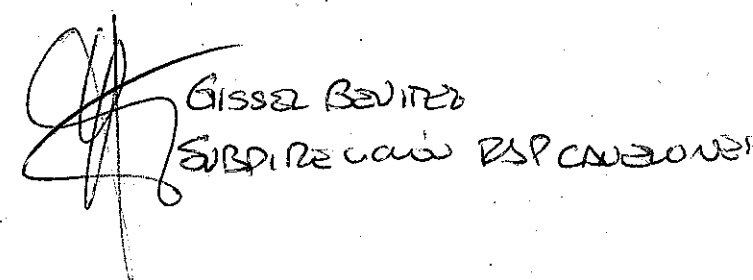 GISSEL BENITEZ
SUBDIRECCIÓN RSP CANELONES